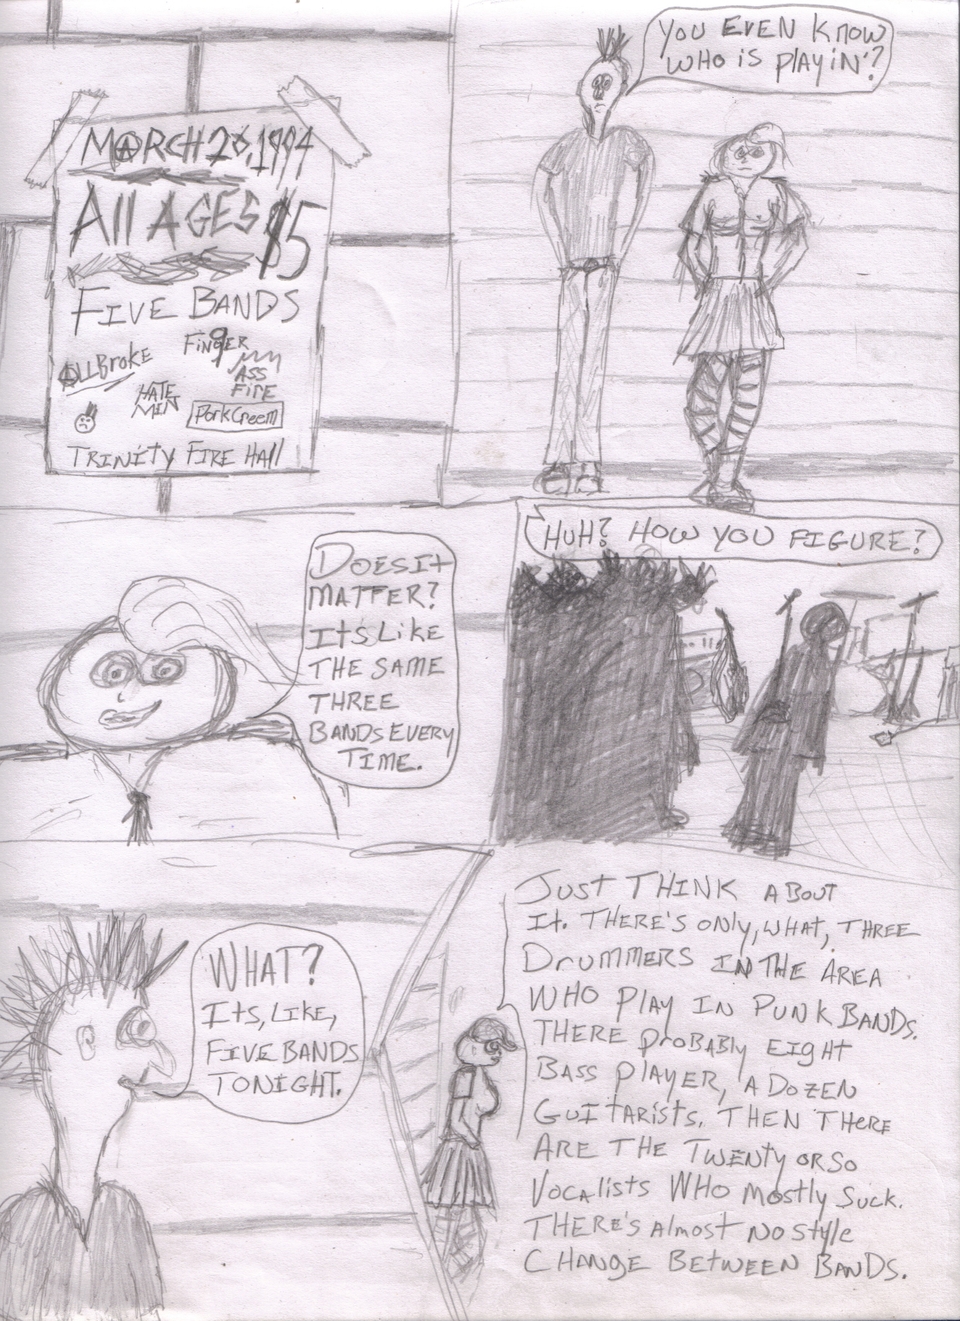 MARCH 26, 1994
All AGES $5
FIVE BANDS
AllBroke
FINgER
MY
ASS
FIRE
HATE
MEN
PorkCreem
TRINITY FIRE HAll
YOU EVEN KNOW
WHO IS PlAYiN'?
DOESIT
MATTER?
ITS LIKE
THE SAME
THREE
BANDS EVERY
TIME.
HUH? HOW YOU FIGURE?
WHAT?
ITS, LIKE,
FIVE BANDS
TONIGHT.
JUST THINK ABOUT
IT. THERE'S ONly, WHAT, THREE
DRUMMERS IN THE AREA
WHO PlAY IN PUNK BANDS.
THERE PROBABlY EIgHT
BASS PlAYER, A DOZEN
GUITARISTS. THEN THERE
ARE THE TWENTY OR SO
VOCAlISTS WHO MOSTlY SUCK.
THERE'S AlMOST NO STYlE
CHANGE BETWEEN BANDS.